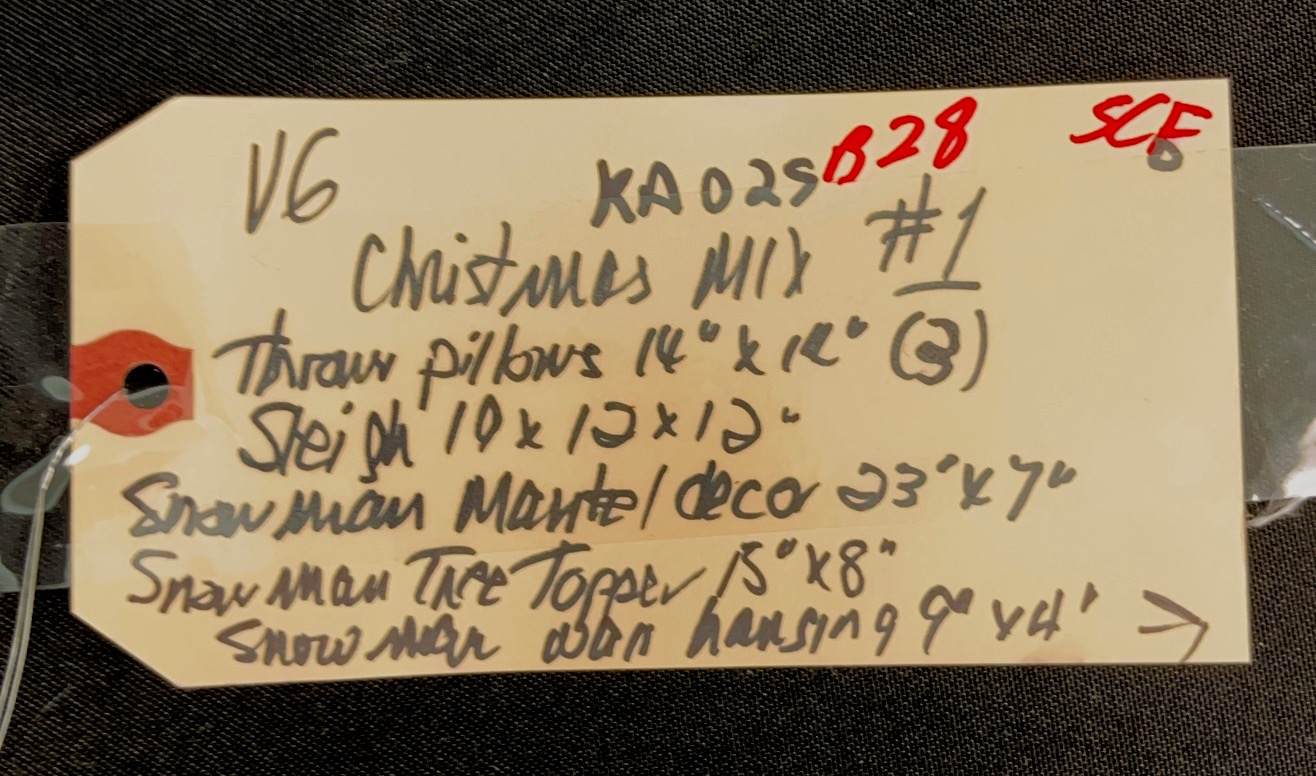 V6 KA029 B28 SCF
Christmas MIX #1
Throw pillows 14" x 12" (3)
Sleigh 10 x 12 x 12"
Snowman Mantel decor 23" x 7"
Snowman Tree Topper 15" x 8"
Snowman wall hanging 9" x 4' →